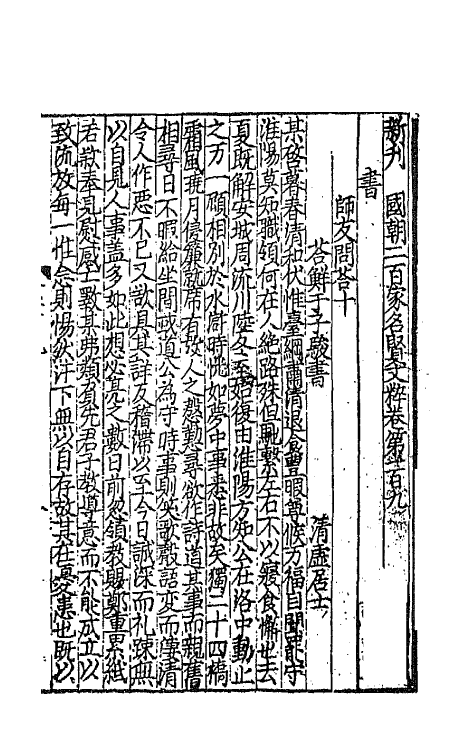 新刋　國朝二百家名賢文粹卷第一百九
書
師友問荅十
荅鮮于子駿書　清虛居士
某啓暮春清和伏惟臺綱肅清退食豐暇尊候万福自聞罷守
淮陽莫知職領何在人絶路殊但馳繫左右不以寢食懈也去
夏既解安城周流川陸冬至始復由淮陽方知公在洛中動止
之万一頋相別於水滸時恍如夢中事悉非故矣獨二十四橋
霜風曉月停簾就席有故人之慇懃尋欲作詩道其事而親舊
相尋日不暇給坐間或道公為守時事則笑歌殽詔変而淒清
令人作惡不已又欲具其詳及稽滯以至今日誠深而礼踈無
以自見人事盖多如此想必亮之數日前忽領教賜鄭重累紙
若歎奉見慰感亡數某弗類負先君子教導意而不能成立以
致流放每一惟念則惕然汗下無以自存故其在憂患也既以